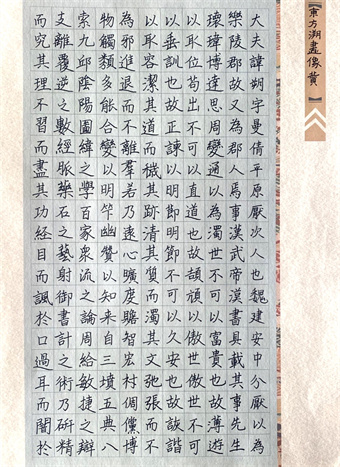 【東方溯畫像贊】
大夫諱朔字曼倩平原厭次人也魏建安中分厭以為
樂陵郡故又為郡人焉事漢武帝漢書具載其事先生
瓌瑋博達思周變通以為濁世不可以富貴也故薄遊
以取位苟出不可以直道也故頡頏以傲世傲世不可
以垂訓也故正諫以明節明節不可以久安也故詼諧
以取容潔其道而穢其跡清其質而濁其文弛張而不
為邪進退而不離羣若乃遠心曠度贍智宏材倜儻博
物觸類多能合變以明筭幽贊以知來自三墳五典八
索九邱陰陽圖緯之學百家衆流之論周給敏捷之辯
支離覆逆之數經脈藥石之藝射御書計之術乃研精
而究其理不習而盡其功經目而諷於口過耳而闇於